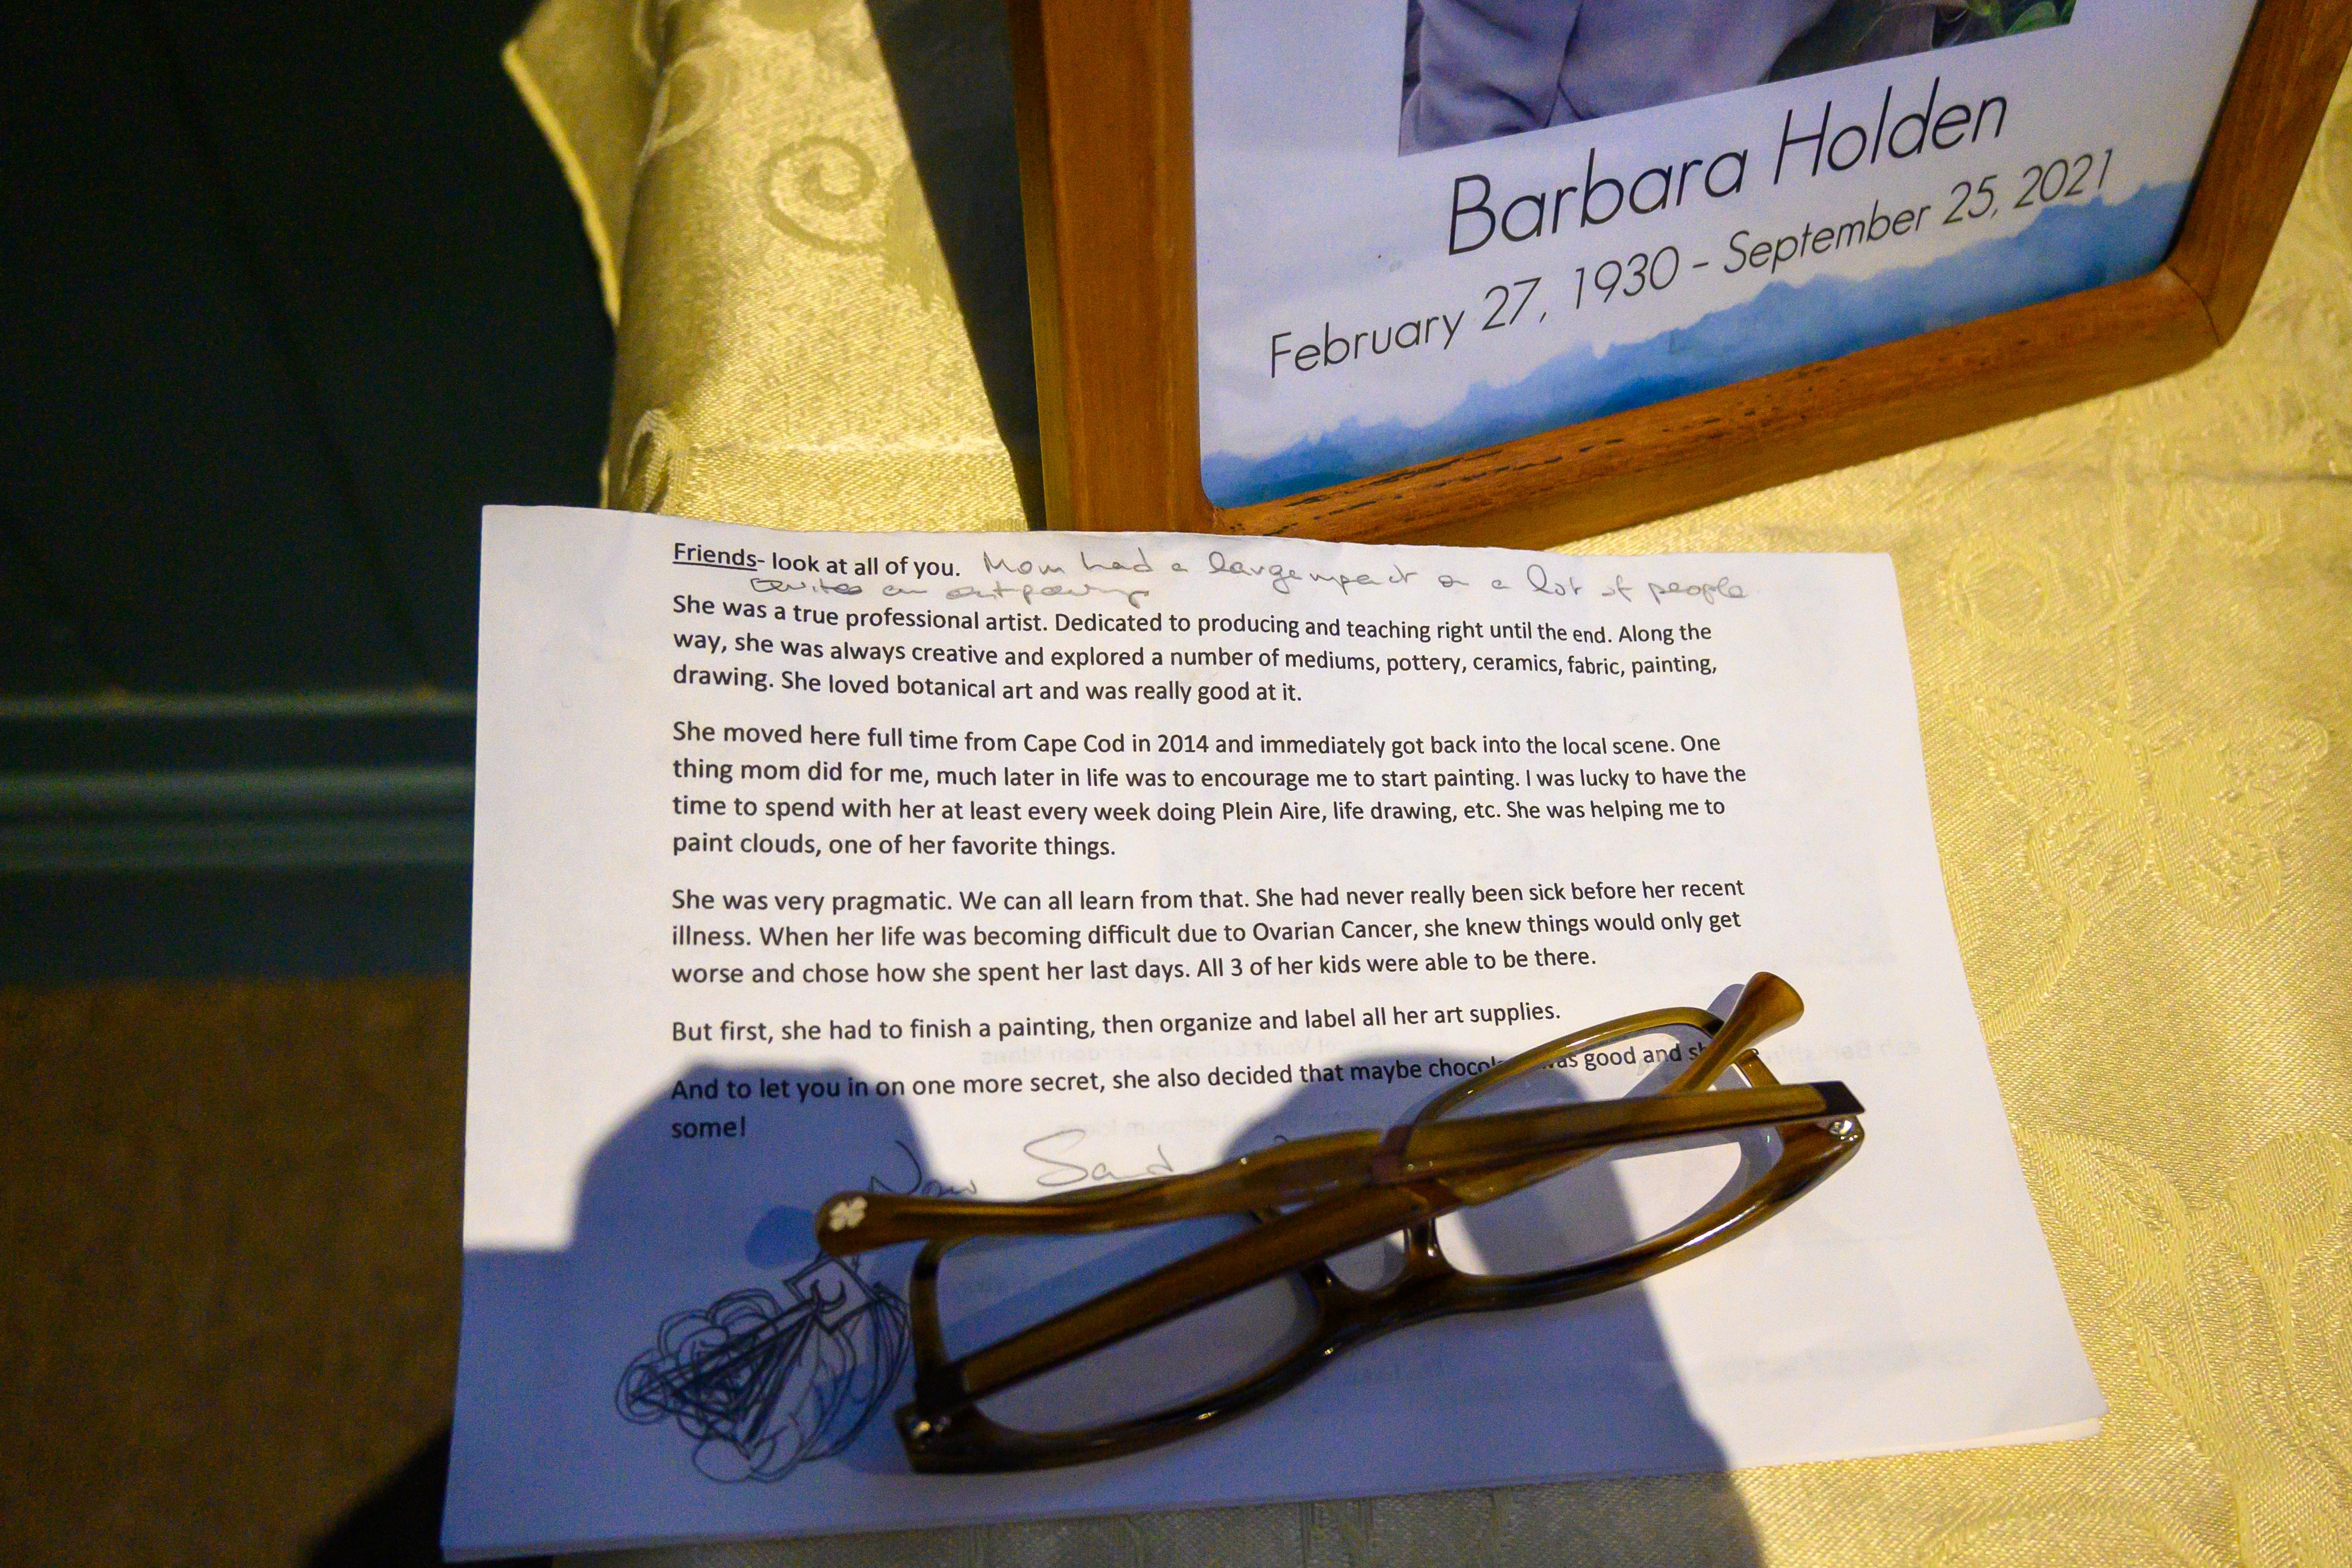 Barbara Holden
February 27, 1930 - September 25, 2021
Friends- look at all of you. Mom had a large impact on a lot of people
an outpouring
She was a true professional artist. Dedicated to producing and teaching right until the end. Along the
way, she was always creative and explored a number of mediums, pottery, ceramics, fabric, painting,
drawing. She loved botanical art and was really good at it.
She moved here full time from Cape Cod in 2014 and immediately got back into the local scene. One
thing mom did for me, much later in life was to encourage me to start painting. I was lucky to have the
time to spend with her at least every week doing Plein Aire, life drawing, etc. She was helping me to
paint clouds, one of her favorite things.
She was very pragmatic. We can all learn from that. She had never really been sick before her recent
illness. When her life was becoming difficult due to Ovarian Cancer, she knew things would only get
worse and chose how she spent her last days. All 3 of her kids were able to be there.
But first, she had to finish a painting, then organize and label all her art supplies.
And to let you in on one more secret, she also decided that maybe chocolate was good and
some!
Now